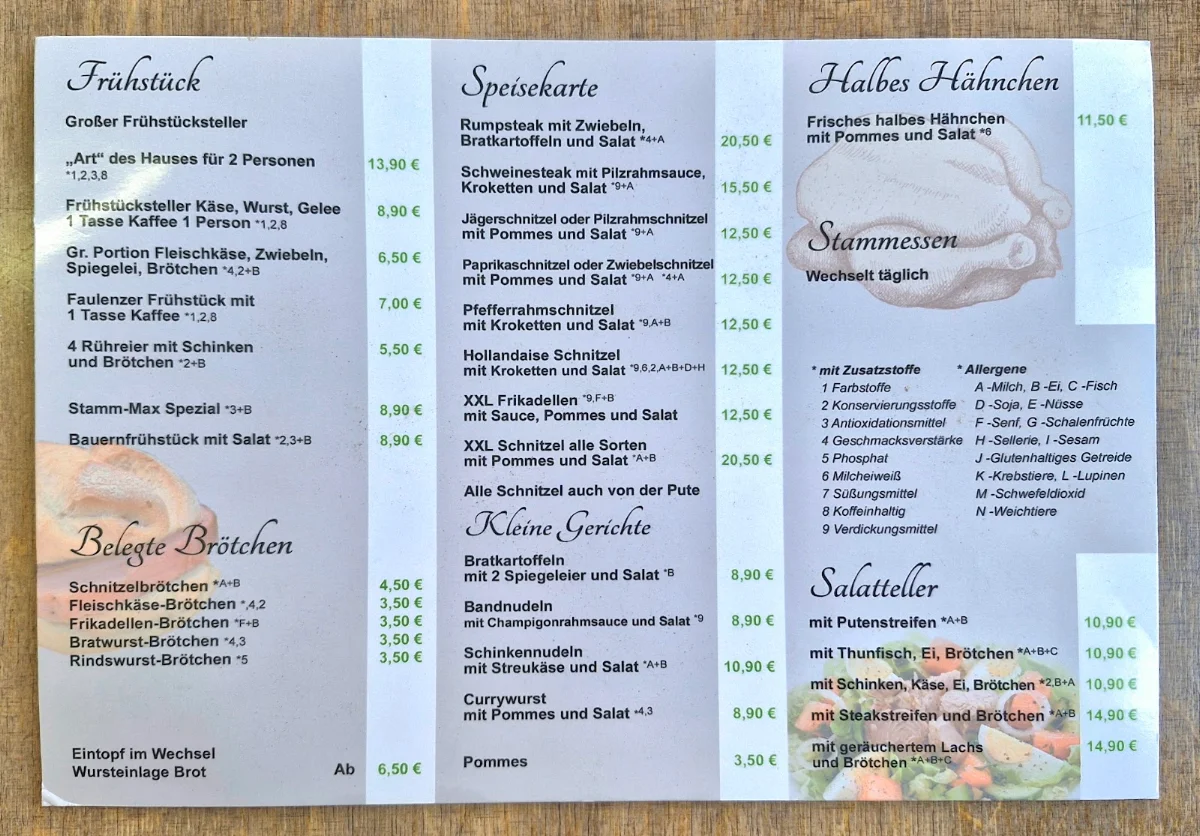 Frühstück
Großer Frühstücksteller
„Art“ des Hauses für 2 Personen 13,90 €
*1,2,3,8
Frühstücksteller Käse, Wurst, Gelee 8,90 €
1 Tasse Kaffee 1 Person *1,2,8
Gr. Portion Fleischkäse, Zwiebeln, 6,50 €
Spiegelei, Brötchen *4,2+B
Faulenzer Frühstück mit 7,00 €
1 Tasse Kaffee *1,2,8
4 Rühreier mit Schinken 5,50 €
und Brötchen *2+B
Stamm-Max Spezial *3+B 8,90 €
Bauernfrühstück mit Salat *2,3+B 8,90 €
Belegte Brötchen
Schnitzelbrötchen *A+B 4,50 €
Fleischkäse-Brötchen *,4,2 3,50 €
Frikadellen-Brötchen *F+B 3,50 €
Bratwurst-Brötchen *4,3 3,50 €
Rindswurst-Brötchen *5 3,50 €
Eintopf im Wechsel
Wursteinlage Brot Ab 6,50 €
Speisekarte
Rumpsteak mit Zwiebeln,
Bratkartoffeln und Salat *4+A 20,50 €
Schweinesteak mit Pilzrahmsauce,
Kroketten und Salat *9+A 15,50 €
Jägerschnitzel oder Pilzrahmschnitzel
mit Pommes und Salat *9+A 12,50 €
Paprikaschnitzel oder Zwiebelschnitzel
mit Pommes und Salat *9+A *4+A 12,50 €
Pfefferrahmschnitzel
mit Kroketten und Salat *9,A+B 12,50 €
Hollandaise Schnitzel
mit Kroketten und Salat *9,6,2,A+B+D+H 12,50 €
XXL Frikadellen *9,F+B
mit Sauce, Pommes und Salat 12,50 €
XXL Schnitzel alle Sorten
mit Pommes und Salat *A+B 20,50 €
Alle Schnitzel auch von der Pute
Kleine Gerichte
Bratkartoffeln
mit 2 Spiegeleier und Salat *B 8,90 €
Bandnudeln
mit Champigonrahmsauce und Salat *9 8,90 €
Schinkennudeln
mit Streukäse und Salat *A+B 10,90 €
Currywurst
mit Pommes und Salat *4,3 8,90 €
Pommes 3,50 €
Halbes Hähnchen
Frisches halbes Hähnchen 11,50 €
mit Pommes und Salat *6
Stammessen
Wechselt täglich
* mit Zusatzstoffe
1 Farbstoffe
2 Konservierungsstoffe
3 Antioxidationsmittel
4 Geschmacksverstärke
5 Phosphat
6 Milcheiweiß
7 Süßungsmittel
8 Koffeinhaltig
9 Verdickungsmittel
* Allergene
A -Milch, B -Ei, C -Fisch
D -Soja, E -Nüsse
F -Senf, G -Schalenfrüchte
H -Sellerie, I -Sesam
J -Glutenhaltiges Getreide
K -Krebstiere, L -Lupinen
M -Schwefeldioxid
N -Weichtiere
Salatteller
mit Putenstreifen *A+B 10,90 €
mit Thunfisch, Ei, Brötchen *A+B+C 10,90 €
mit Schinken, Käse, Ei, Brötchen *2,B+A 10,90 €
mit Steakstreifen und Brötchen *A+B 14,90 €
mit geräuchertem Lachs 14,90 €
und Brötchen *A+B+C